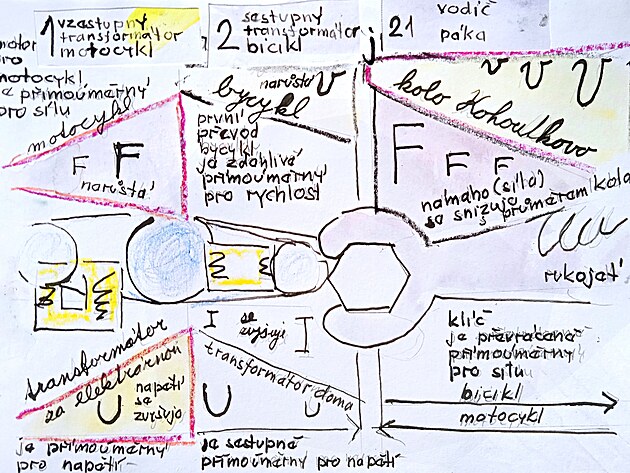 1 vzestupný
transformátor
motocykl
2 sestupný
transformátor
bicikl
21 vodič
páka
motor
pro
motocykl
přímoúměrný
pro sílu
motocykl
F F
narůstá
bycykl
narůstá v
první
převod
bycykl
je zdánlivá
přímoúměrný
pro rychlost
j
v v v
kolo Kohoutkovo
F F F
namaho (síla)
se snižuje průměrem kola
rukojeť
transformátor
za elektrárnou
U napětí
se
zvyšuje
je přímoúměrný
pro napětí
I se
zvyšuje I
transformátor doma
U U
je sestupná
přímoúměrný pro napětí
klíč
je převrácená
přímoúměrný
pro sílu
bicikl
motocykl